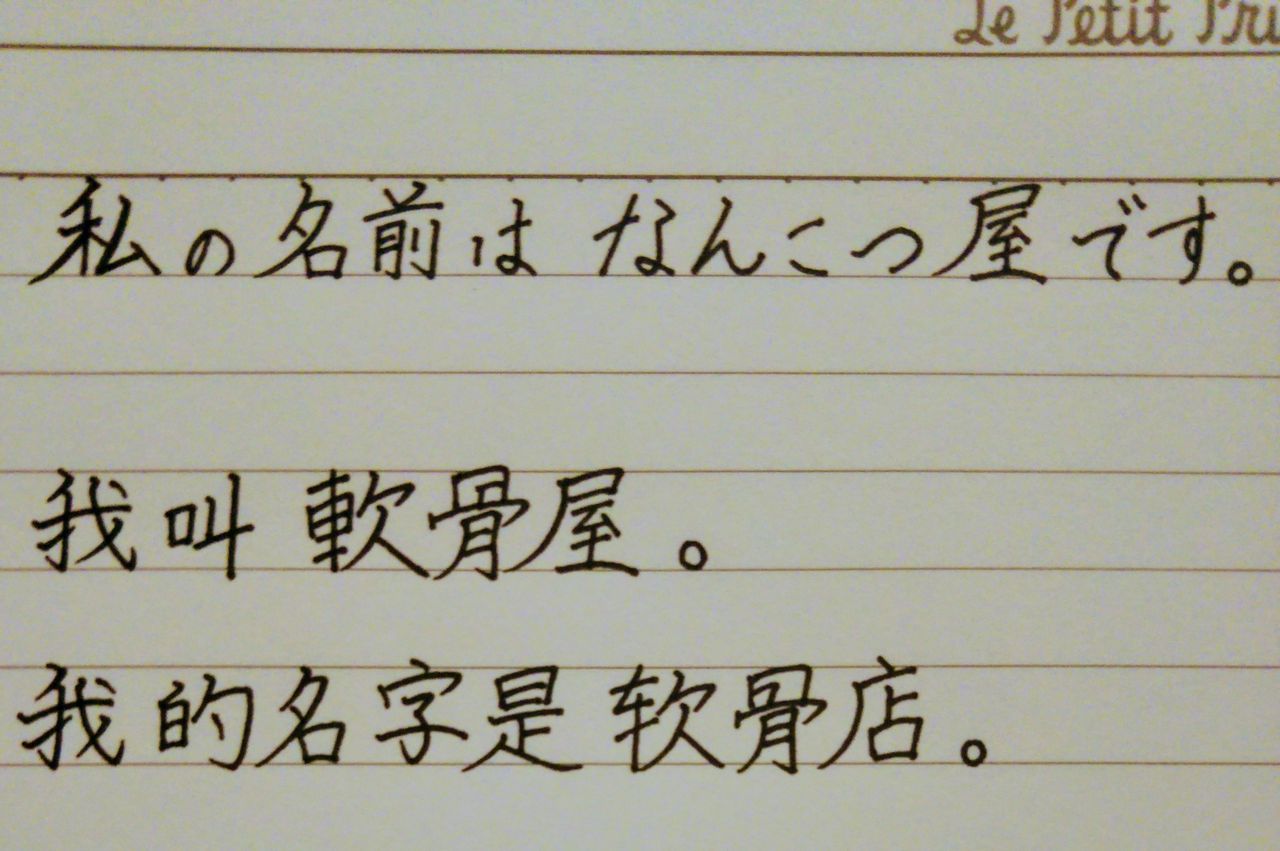 Le Petit Pri
私の名前は なんこつ屋です。
我叫 軟骨屋。
我的名字是 软骨店。